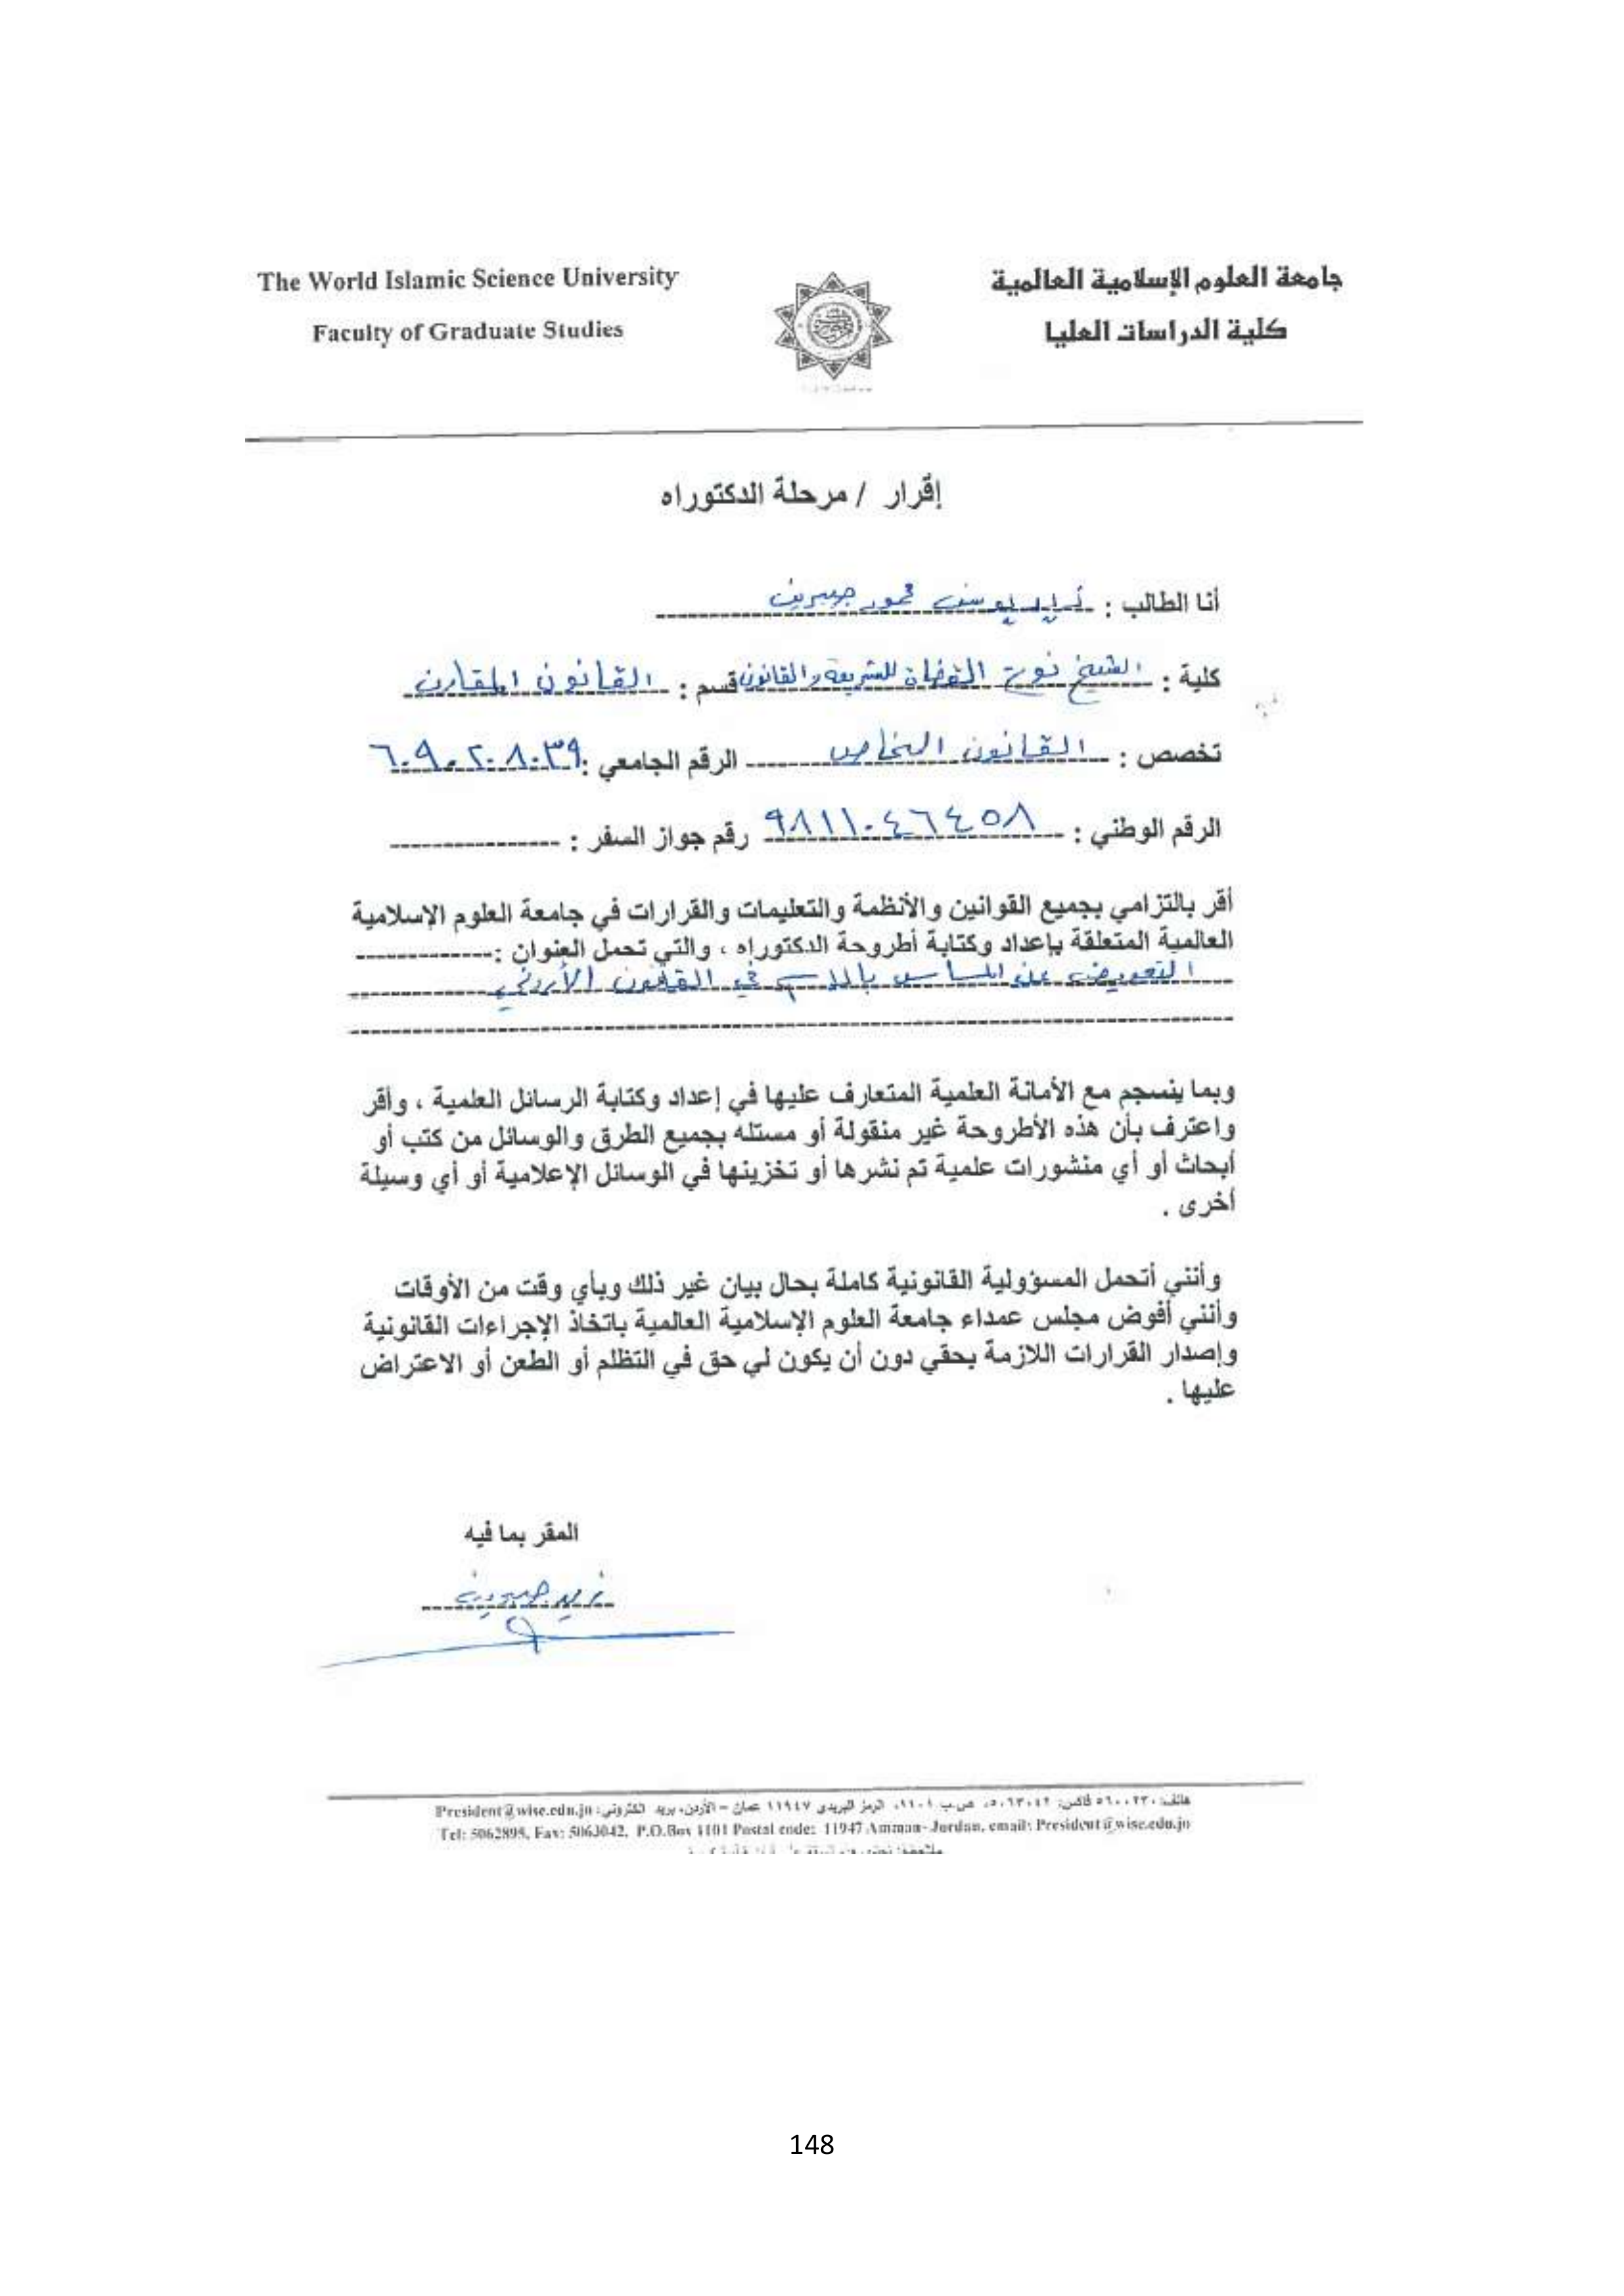 The World Islamic Science University
جامعة العلوم الإسلامية العالمية
Faculty of Graduate Studies
كلية الدراسات العليا
إقرار / مرحلة الدكتوراه
أنا الطالب : يوسف محمود جبرين
كلية : الشيخ نوح القضاة للشريعة والقانون قسم : القانون المقارن
تخصص : القانون الخاص الرقم الجامعي : ٦٠٩٠٢٠٨٠٣٩
الرقم الوطني : ٩٨١١٠٤٦٤٥٨ رقم جواز السفر : ----------------
أقر بالتزامي بجميع القوانين والأنظمة والتعليمات والقرارات في جامعة العلوم الإسلامية
العالمية المتعلقة بإعداد وكتابة أطروحة الدكتوراه ، والتي تحمل العنوان :-------------
التعويض عن المساس بالاسم في القانون الأردني
وبما ينسجم مع الأمانة العلمية المتعارف عليها في إعداد وكتابة الرسائل العلمية ، وأقر
واعترف بأن هذه الأطروحة غير منقولة أو مستله بجميع الطرق والوسائل من كتب أو
أبحاث أو أي منشورات علمية تم نشرها أو تخزينها في الوسائل الإعلامية أو أي وسيلة
أخرى .
وأنني أتحمل المسؤولية القانونية كاملة بحال بيان غير ذلك وبأي وقت من الأوقات
وأنني أفوض مجلس عمداء جامعة العلوم الإسلامية العالمية باتخاذ الإجراءات القانونية
وإصدار القرارات اللازمة بحقي دون أن يكون لي حق في التظلم أو الطعن أو الاعتراض
عليها .
المقر بما فيه
جبرين
هاتف: ٥٦٠٠٢٣٠ فاكس: ٥٠٦٣٠٤٢، ص.ب ١١٠١، الرمز البريدي ١١٩٤٧ عمان – الأردن، بريد الكتروني: President@wise.edu.jo
Tel: 5062895, Fax: 5063042, P.O.Box 1101 Postal code: 11947 Amman- Jordan, email: President@wise.edu.jo
148